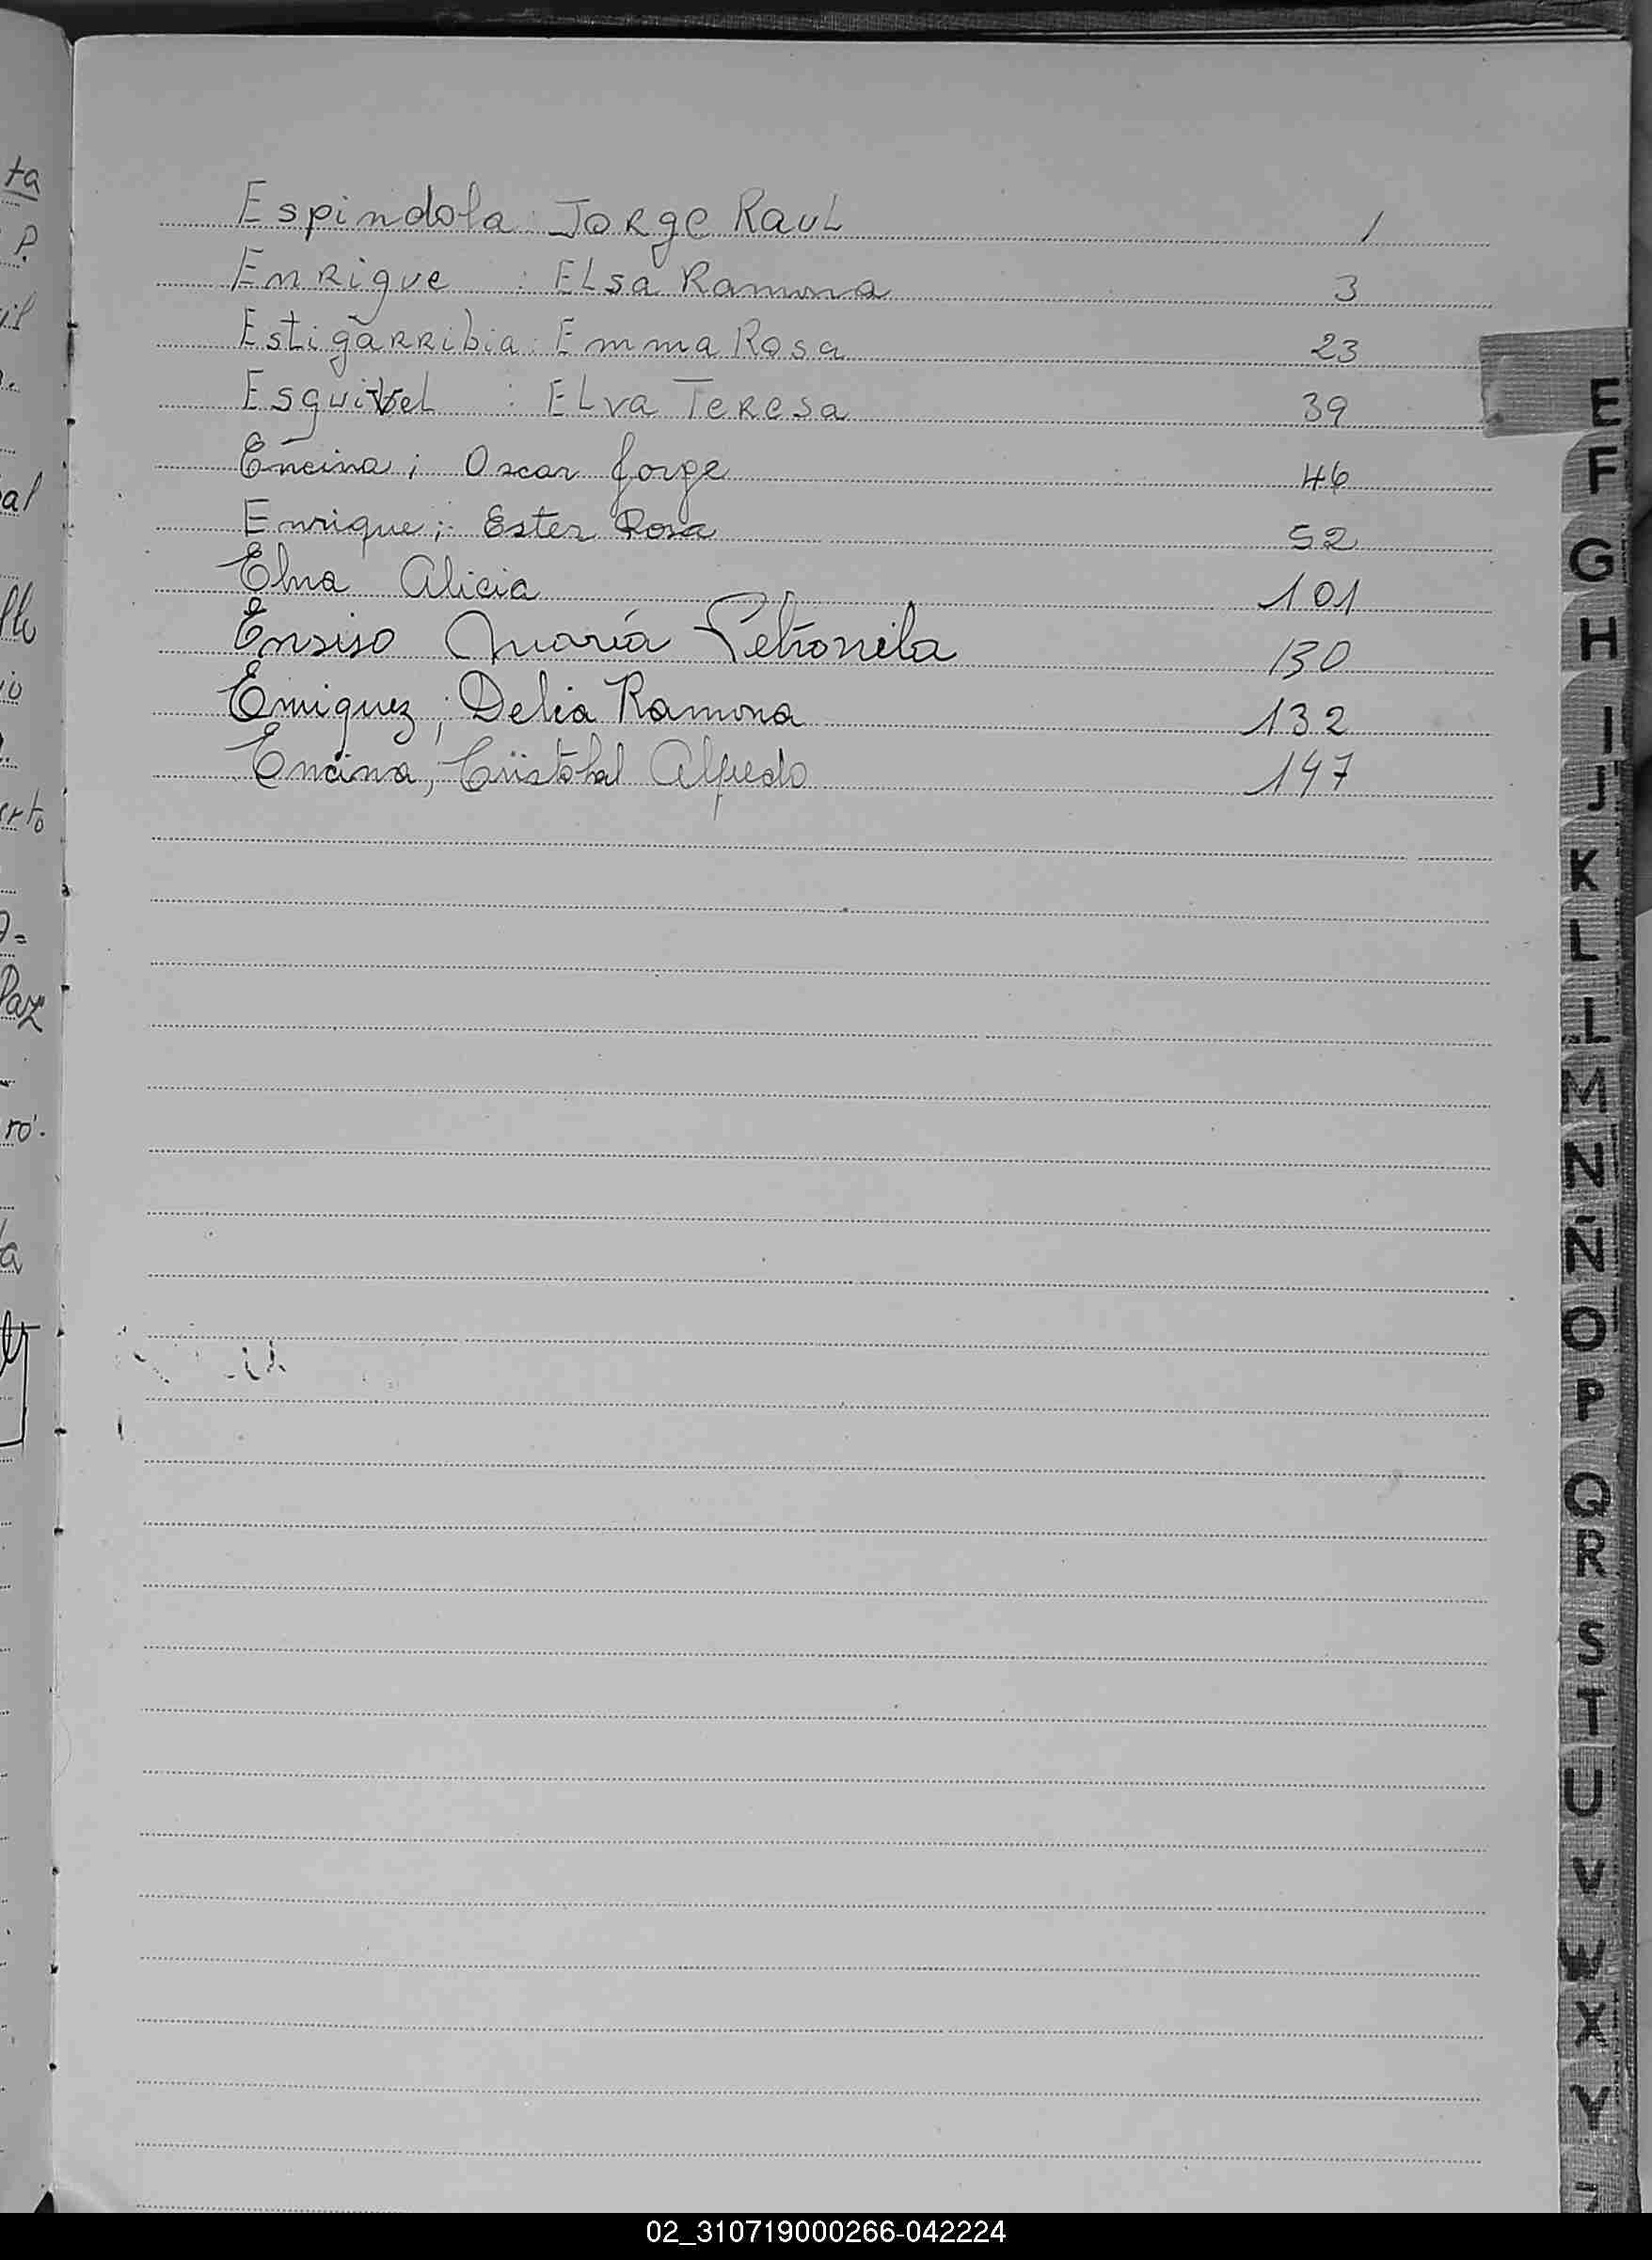 Espindola: Jorge Raul 1
Enrique : Elsa Ramona 3
Estigarribia: Emma Rosa 23
Esquivel : Elva Teresa 39
Encina; Oscar Jorge 46
Enrique; Ester Rosa 52
Elna Alicia 101
Ensiso María Petronila 130
Emiquez; Delia Ramona 132
Encina, Cristobal Alfredo 147
E
F
G
H
I
J
K
L
L
M
N
Ñ
O
P
Q
R
S
T
U
V
W
X
Y
Z
02_310719000266-042224